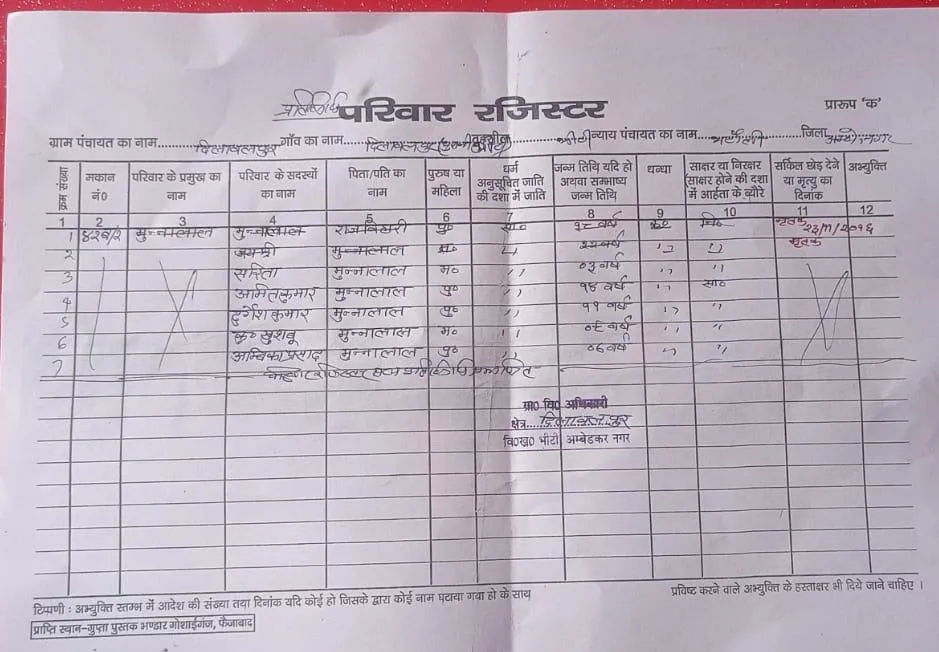 प्रतिलिपि परिवार रजिस्टर प्रारूप 'क'
ग्राम पंचायत का नाम दिलावलपुर गाँव का नाम दिलावलपुर तहसील भीटी न्याय पंचायत का नाम जिला अम्बेडकरनगर
क्रम संख्या मकान नं0 परिवार के प्रमुख का नाम परिवार के सदस्यों का नाम पिता/पति का नाम पुरुष या महिला धर्म अनुसूचित जाति की दशा में जाति जन्म तिथि यदि हो अथवा सम्भाष्य जन्म तिथि धन्धा साक्षर या निरक्षर (साक्षर होने की दशा में आर्हता के ब्यौरे सर्किल छोड़ देने या मृत्यु का दिनांक अभ्युक्ति
1 2 3 4 5 6 7 8 9 10 11 12
1 मुन्नालाल मुन्नालाल राजबिहारी पु० सा० वर्ष कृ० नि० मृतक 23/11/2016
2 जयश्री मुन्नालाल म० " वर्ष " " मृतक
3 सरिता मुन्नालाल म० " ०३ वर्ष " "
4 अमित कुमार मुन्नालाल पु० " १४ वर्ष " सा०
5 दुर्गेश कुमार मुन्नालाल पु० " ११ वर्ष " "
6 कु० खुशबू मुन्नालाल म० " वर्ष " "
7 अम्बिका प्रसाद मुन्नालाल पु० " ०६ वर्ष " "
ग्रा0 वि0 अधिकारी
क्षेत्र....दिलावलपुर
वि0ख0 भीटी अम्बेडकर नगर
टिप्पणी : अभ्युक्ति स्तम्भ में आदेश की संख्या तथा दिनांक यदि कोई हो जिसके द्वारा कोई नाम घटाया गया हो के साथ प्रविष्ट करने वाले अभ्युक्ति के हस्ताक्षर भी दिये जाने चाहिए ।
प्राप्ति स्थान-गुप्ता पुस्तक भण्डार गोशाईगंज, फैजाबाद